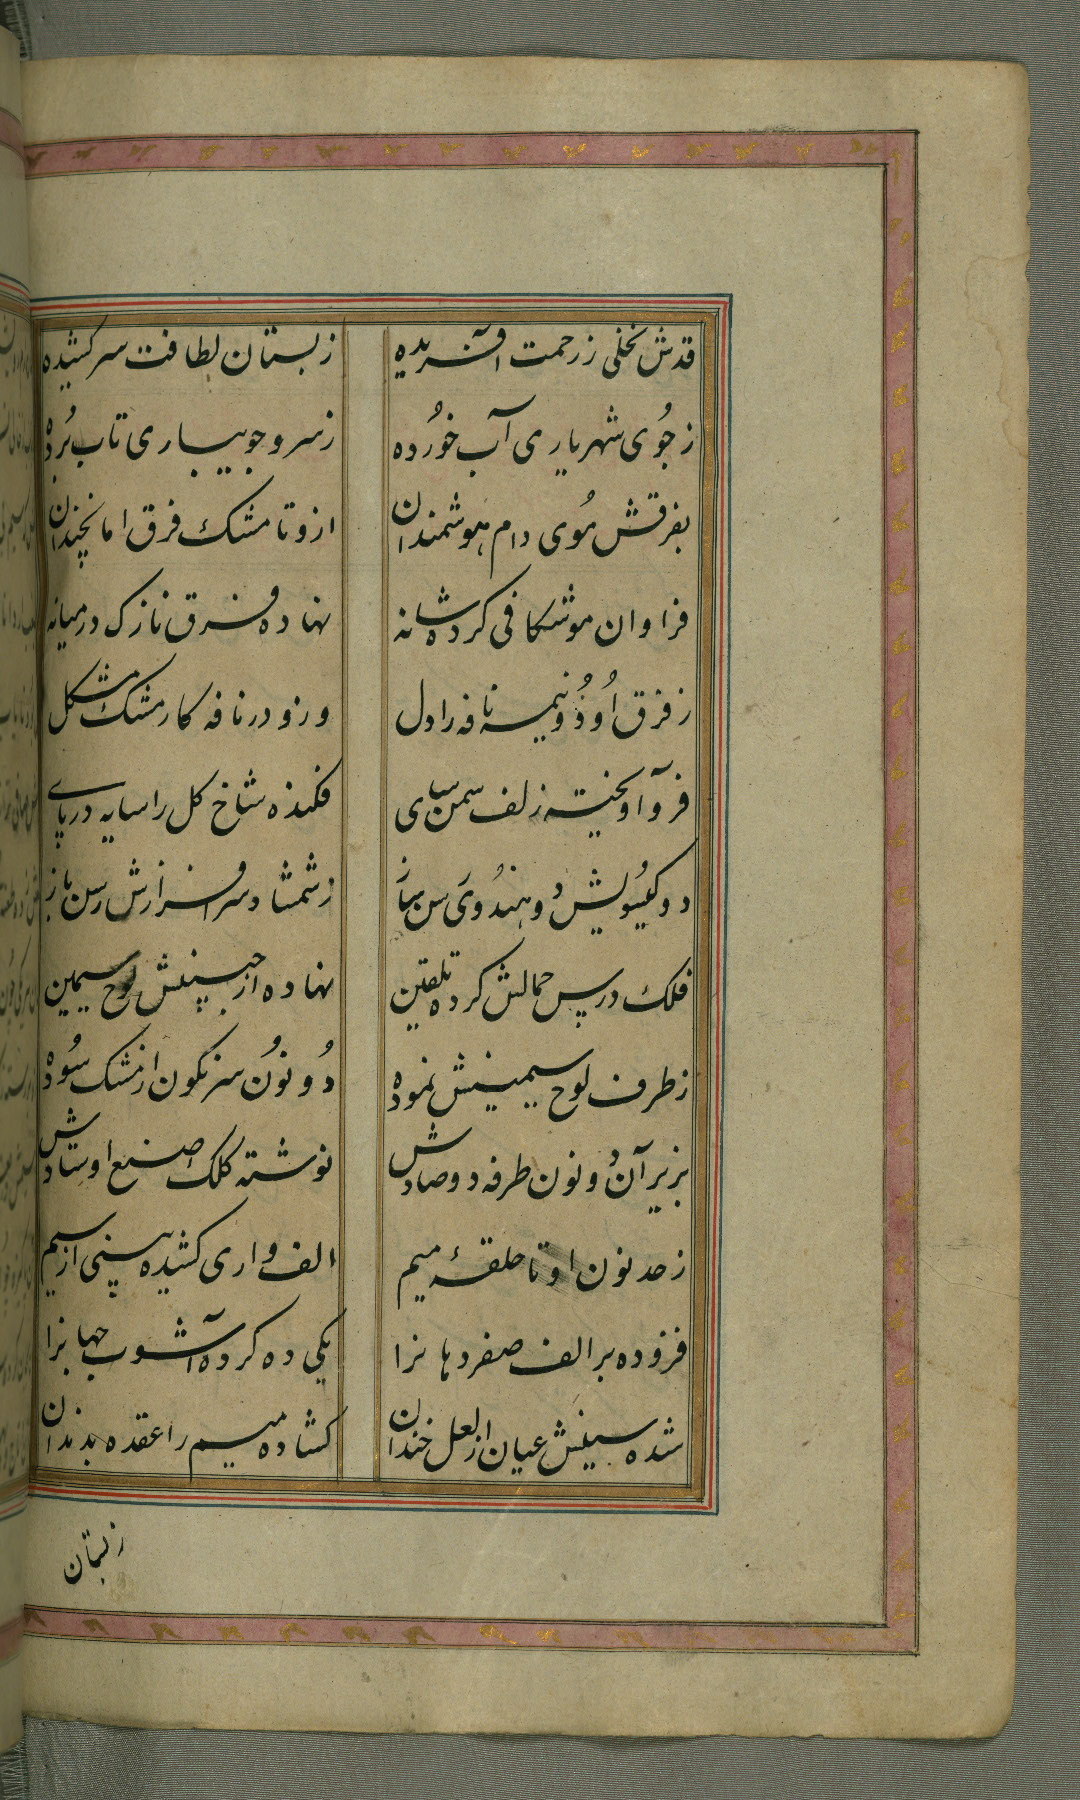 قدش نخلی ز رحمت آفریده زبستان لطافت سر کشیده
ز جُوی شهریاری آب خُورده ز سرو جویباری تاب بُرده
بفرقش مُوی دام هوشمندان ازو تا مشک فرق اما نچندان
فراوان موشکافی کرده شانه نهاده فرق نازک درمیانه
ز فرق اُو دُو نیمه نافه را دل وزو در نافه کار مشک مشکل
فرو آویخته زلف سمن سای فکنده شاخ کل را سایه در پای
دو کیُسویش دُو هندُوی رسن ساز ز شمشاد سرافرازش رسن باز
فلک درس جمالش کرده تلقین نهاده از جبینش لوح سیمین
ز طرف لوح سیمینش نموده دُو نوُن سرنکون از مشک سُوده
بزیر آن دُو نون طرفه دو صادش نوشته کلک صنع اوستادش
ز حد نون او تا حلقهٔ میم الف واری کشیده بینی از سیم
فزوده بر الف صفر دهانرا یکی ده کرده آشوب جهانرا
شده سینش عیان از لعل خندان کشاده میم را عقده بدندان
زبستان